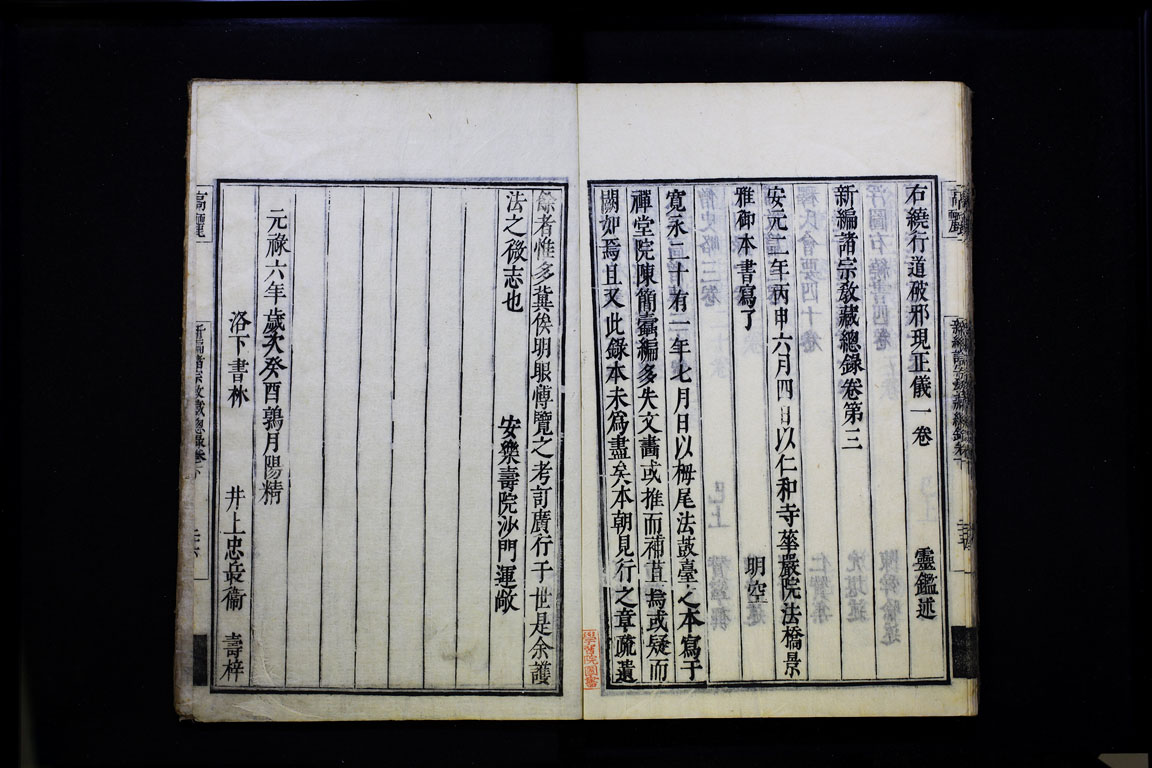 右繞行道破邪現正儀一卷 靈鑑述
新編諸宗教藏總錄卷第三
安元二年丙申六月四日以仁和寺華嚴院法橋景
雅御本書寫了 明空
寬永二十有一年七月日以栂尾法鼓臺之本寫于
禪堂院陳簡蠹編多失文畵或推而補苴焉或疑而
闕如焉且又此錄本未爲盡矣本朝見行之章疏遺
餘者惟多冀俟明眼博覽之考訂廣行于世是余護
法之微志也 安樂壽院沙門運敞
元祿六年歲次癸酉鶉月陽精
洛下書林 井上忠兵衞 壽梓
高麗
新編諸宗教藏總錄卷下
二十六